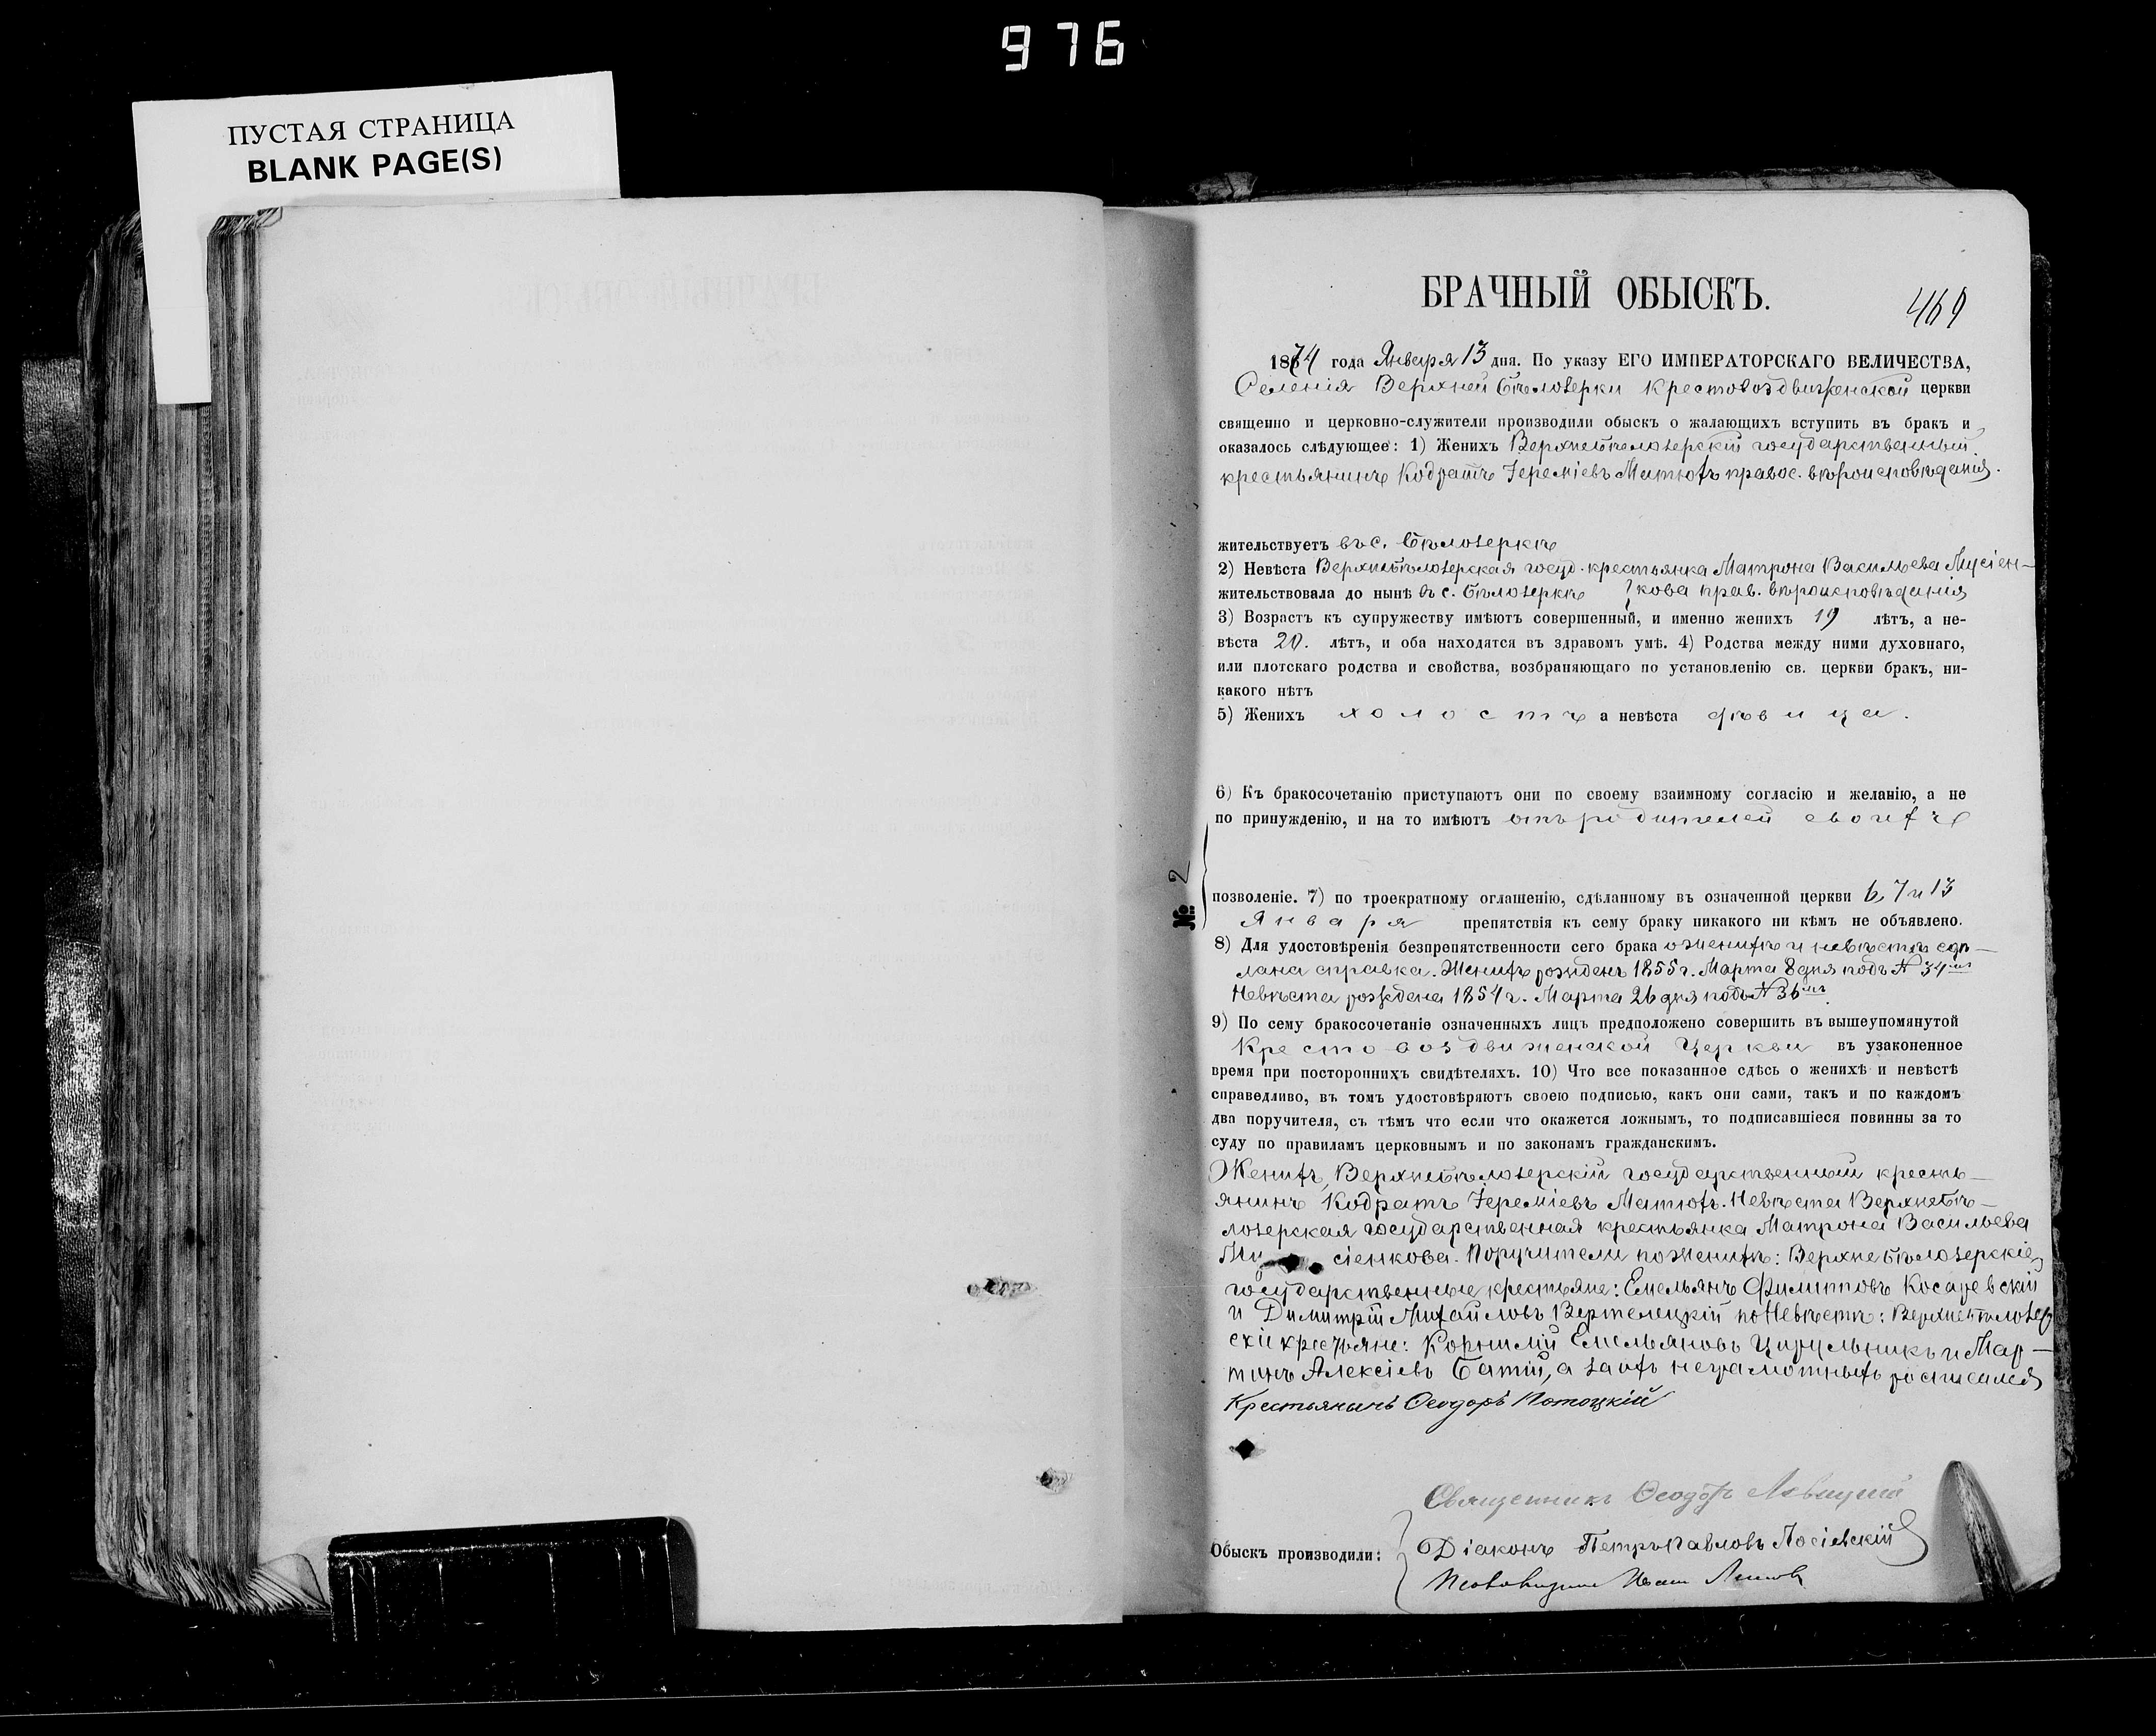 976
ПУСТАЯ СТРАНИЦА
BLANK PAGE(S)
БРАЧНЫЙ ОБЫСКЪ.
469
1874 года Января 13 дня. По указу ЕГО ИМПЕРАТОРСКАГО ВЕЛИЧЕСТВА,
Селенія Верхней Бѣлозерки Крестовоздвиженской церкви
священно и церковно-служители производили обыскъ о жалающихъ вступить въ бракъ и
оказалось слѣдующее: 1) Женихъ Верхнебѣлозерскій государственный
крестьянинъ Кодратъ Іереміевъ Матюхъ правос. вѣроисповѣданія.
жительствуетъ въ с. Бѣлозеркѣ
2) Невѣста Верхнебѣлозерская госуд. крестьянка Матрона Васильева Мусіен-
жительствовала до нынѣ въ с. Бѣлозеркѣ кова прав. вѣроисповѣданія
3) Возрастъ къ супружеству имѣютъ совершенный, и именно женихъ 19 лѣтъ, а не-
вѣста 20. лѣтъ, и оба находятся въ здравомъ умѣ. 4) Родства между ними духовнаго,
или плотскаго родства и свойства, возбраняющаго по установленію св. церкви бракъ, ни-
какого нѣтъ
5) Женихъ холостъ а невѣста дѣвица.
6) Къ бракосочетанію приступаютъ они по своему взаимному согласію и желанію, а не
по принужденію, и на то имѣютъ отъ родителей своихъ
№ 2
позволеніе. 7) по троекратному оглашенію, сдѣланному въ означенной церкви 6, 7 и 13
Января препятствія къ сему браку никакого ни кѣмъ не объявлено.
8) Для удостовѣренія безпрепятственности сего брака о женихѣ и невѣстѣ сдѣ-
лана справка. Женихъ рожденъ 1855 г. Марта 8 дня подъ № 34мъ
Невѣста рождена 1854 г. Марта 26 дня подъ № 36мъ.
9) По сему бракосочетаніе означенныхъ лицъ предположено совершить въ вышеупомянутой
Крестовоздвиженской Церкви въ узаконенное
время при постороннихъ свидѣтеляхъ. 10) Что все показанное сдѣсь о женихѣ и невѣстѣ
справедливо, въ томъ удостовѣряютъ своею подписью, какъ они сами, такъ и по каждомъ
два поручителя, съ тѣмъ что если что окажется ложнымъ, то подписавшіеся повинны за то
суду по правиламъ церковнымъ и по законамъ гражданскимъ.
Женихъ, Верхнебѣлозерскій государственный кресть-
янинъ Кодратъ Іереміевъ Матюхъ. Невѣста Верхнебѣ-
лозерская государственная крестьянка Матрона Васильева
Му сіенкова. Поручители по женихѣ: Верхнебѣлозерскіе
государственные крестьяне: Емельянъ Филиповъ Косаревскій
и Димитрій Михайловъ Вертелецкій по Невѣстѣ: Верхнебѣлозер
скіе крестьяне: Корнилій Емельяновъ Цирульникъ и Мар-
тинъ Алексіевъ Батій, а за ихъ неграмотныхъ росписался
Крестьянинъ Ѳеодоръ Потоцкій
Священникъ Ѳеодоръ Левицкій
Обыскъ производили: Діаконъ Петръ Павловъ Лосіевскій
Иванъ